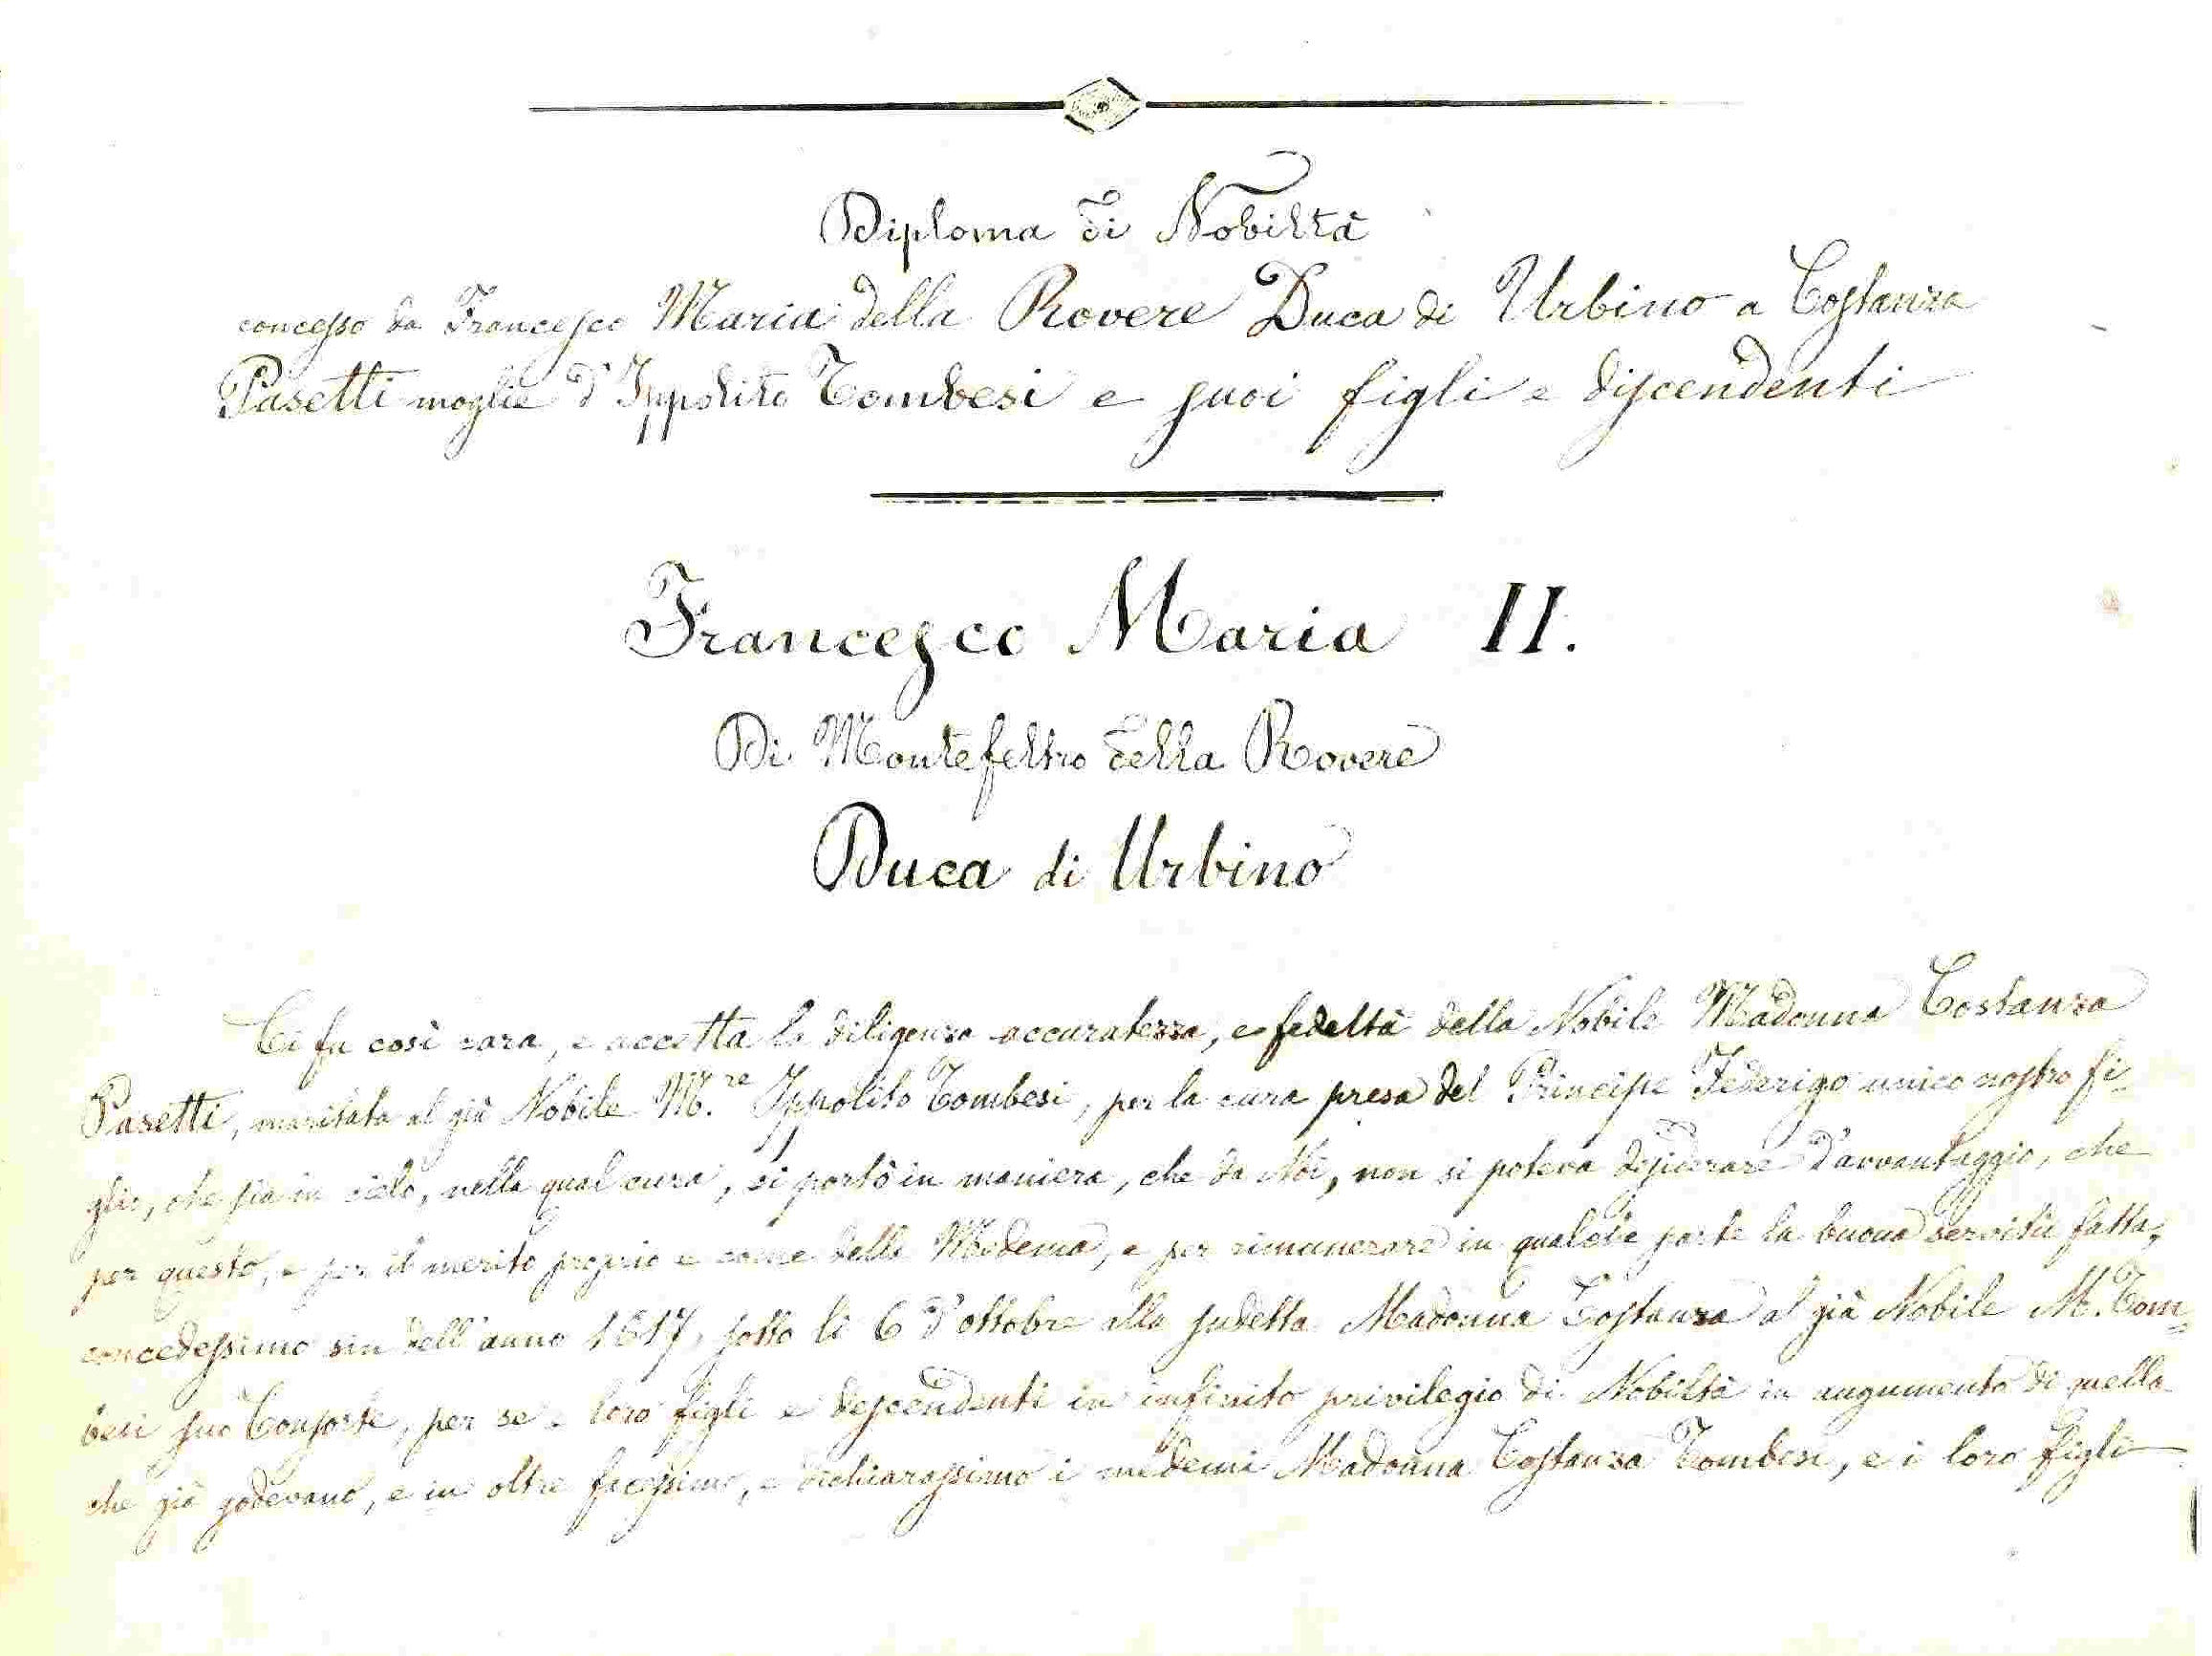 Diploma di Nobiltà
concesso da Francesco Maria della Rovere Duca di Urbino a Costanza
Pasetti moglie d'Ippolito Tombesi e suoi figli e discendenti
Francesco Maria II.
Di Montefeltro della Rovere
Duca di Urbino
Ci fu così cara, e accetta la diligenza accuratezza, e fedeltà della Nobile Madonna Costanza
Pasetti, maritata al già Nobile M.re Ippolito Tombesi, per la cura presa del Principe Federigo unico nostro fi-
glio, che sia in cielo, nella qual cura, si portò in maniera, che da Noi, non si poteva desiderare d'avvantaggio, che
per questo, e per il merito proprio e come della Medema, e per rimunerare in qualche parte la buona servitù fatta,
concedessimo sin dell'anno 1617, sotto li 6 d'ottobre alla sudetta Madonna Costanza al già Nobile M. Tom=
besi suo Consorte, per se e loro figli e descendenti in infinito privilegio di Nobiltà in augumento di quella
che già godevano, e in oltre facessimo, e dichiarassimo i medemi Madonna Costanza Tombesi, e i loro figli